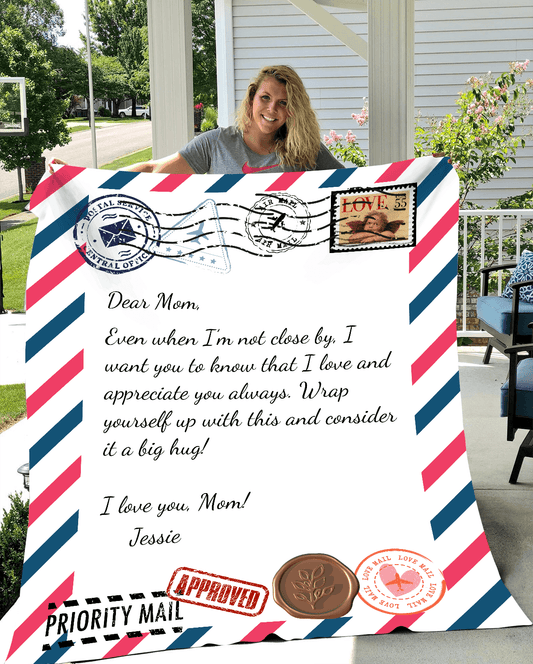 POSTAL SERVICE
CENTRAL OFFICE
AIR MAIL
AIR MAIL
LOVE 55
Dear Mom,
Even when I'm not close by, I
want you to know that I love and
appreciate you always. Wrap
yourself up with this and consider
it a big hug!
I love you, Mom!
Jessie
PRIORITY MAIL
APPROVED
LOVE MAIL LOVE MAIL LOVE MAIL LOVE MAIL